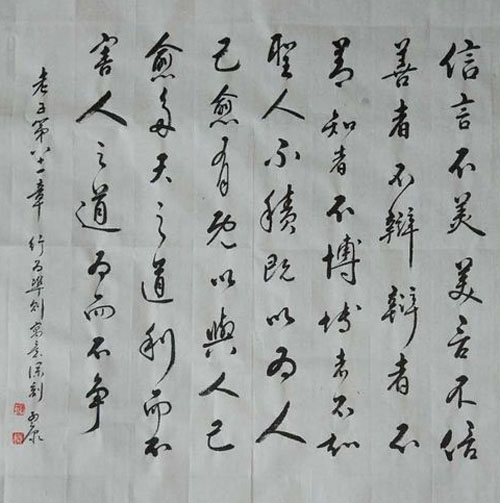 信言不美美言不信
善者不辯辯者不
善知者不博博者不知
聖人不積既以为人
己愈有既以與人己
愈多天之道利而不
害人之道为而不争
老子第八十一章 行为準则 寓意深刻